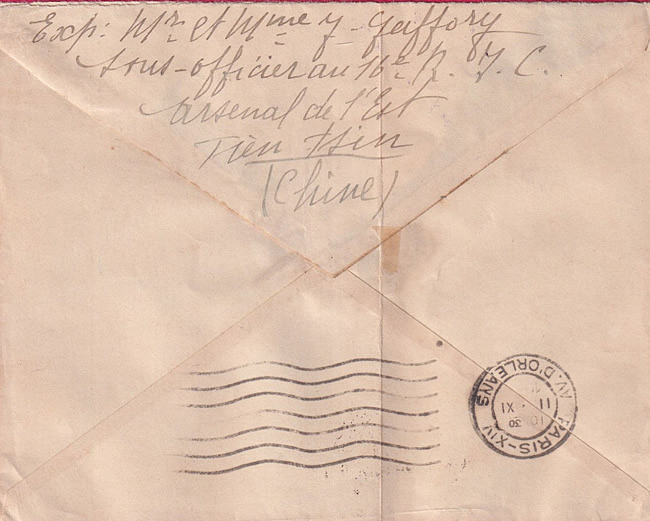 Exp: Mr et Mme J. Gaffory
sous-officier au 16e R. I. C.
Arsenal de l'Est
Tien tsin
(Chine)
PARIS-XIV
AV. D'ORLEANS
11 · XI
30